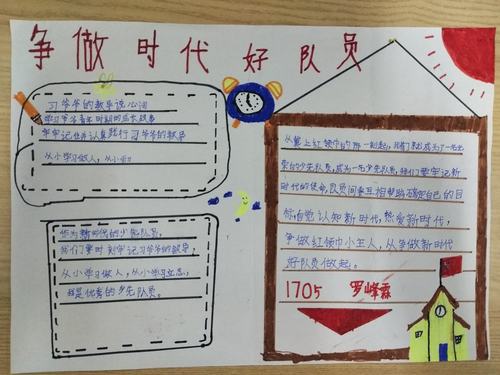 争做时代好队员
习爷爷的教导记心间
学习爷爷青年时期的成长故事
牢牢记住并认真践行习爷爷的教导
从小学习做人，从小
作为新时代的少先队员，
我们要时刻牢记习爷爷的教导，
从小学习做人，从小学习立志，
我是优秀的少先队员。
从戴上红领巾的那一刻起，我们就成为了一名光
荣的少先队员，成为一名少先队员，我们要牢记新
时代的使命，队员间要互相帮助确定自己的目
标，自觉认知新时代，热爱新时代，
争做红领巾小主人，从争做新时代
好队员做起。
1705 罗峰霖